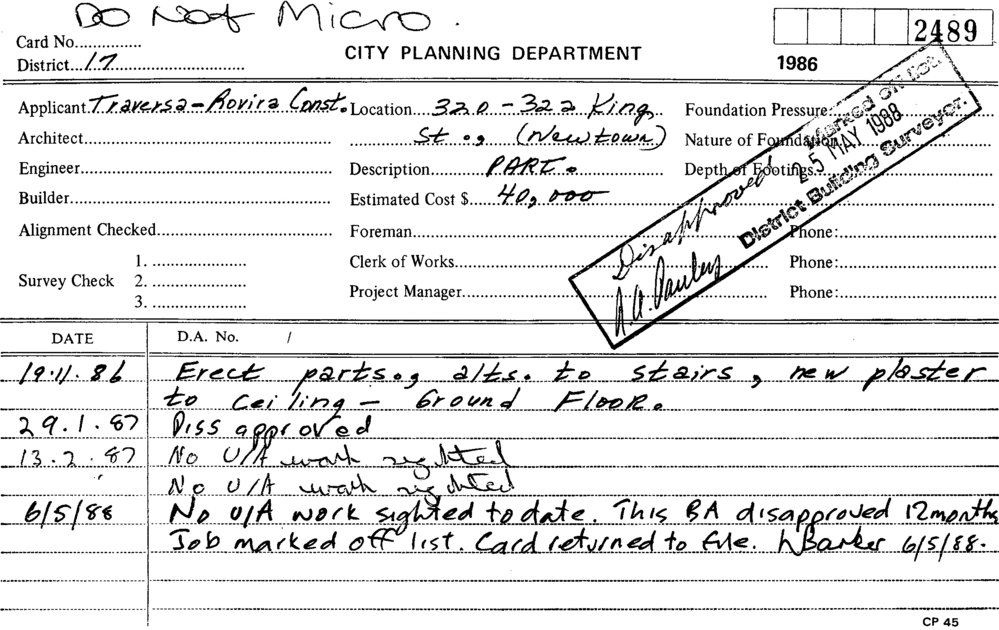 Do Not Micro.
Card No...............
2489
District...17...............................
CITY PLANNING DEPARTMENT
1986
Applicant Traversa - Rovira Const. Location....320 - 322 King
Foundation Pressure
Architect
St., (Newtown)
Nature of Foundation
Engineer
Description..........PART.
Depth of Footings
Builder
Estimated Cost $.....40,000
Alignment Checked
Foreman
Phone:
Survey Check
1.
2.
3.
Clerk of Works
Phone:
Project Manager
Phone:
Marked off list
25 MAY 1988
District Building Surveyor.
Disapproved
DATE
D.A. No. /
19.11.86 Erect parts., alts. to stairs, new plaster
to ceiling - Ground FLOOR.
29.1.87 Diss approved
13.2.87 No U/A work sighted
No U/A work sighted
6/5/88 No U/A work sighted to date. This BA disapproved 12months
Job marked off list. Card returned to file. hBarker 6/5/88.
CP 45